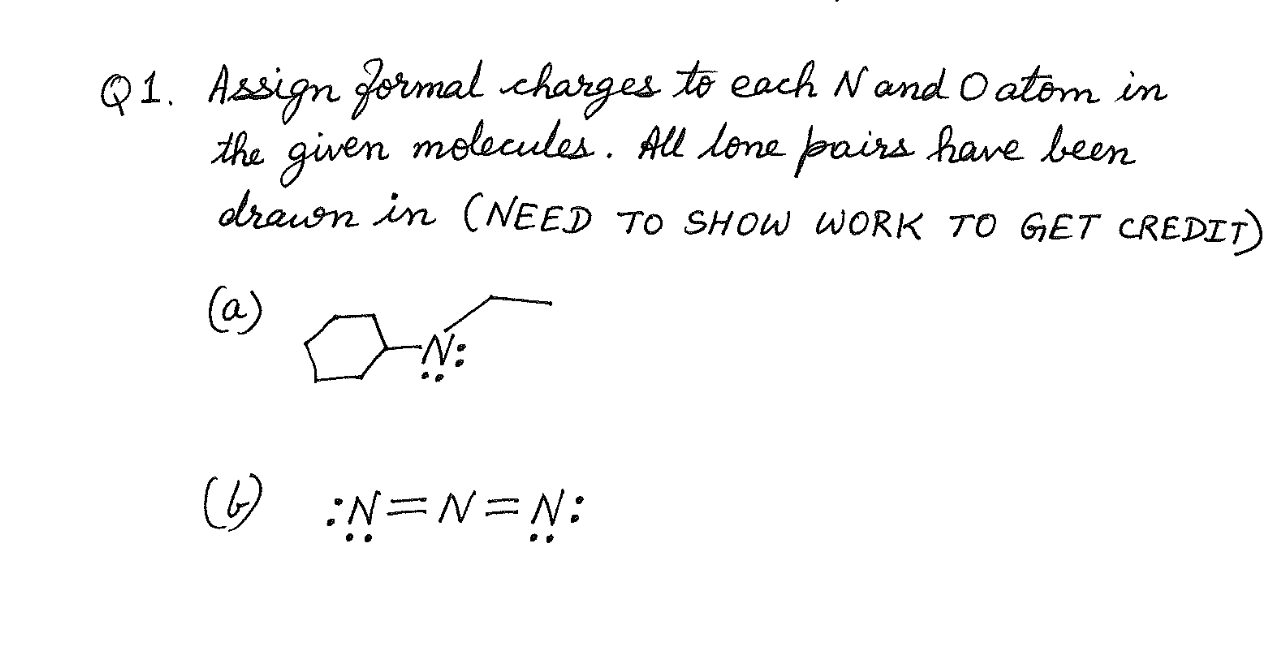 Q1. Assign formal charges to each N and O atom in
the given molecules. All lone pairs have been
drawn in (NEED TO SHOW WORK TO GET CREDIT)
(a)
N:
(b) :N=N=N: